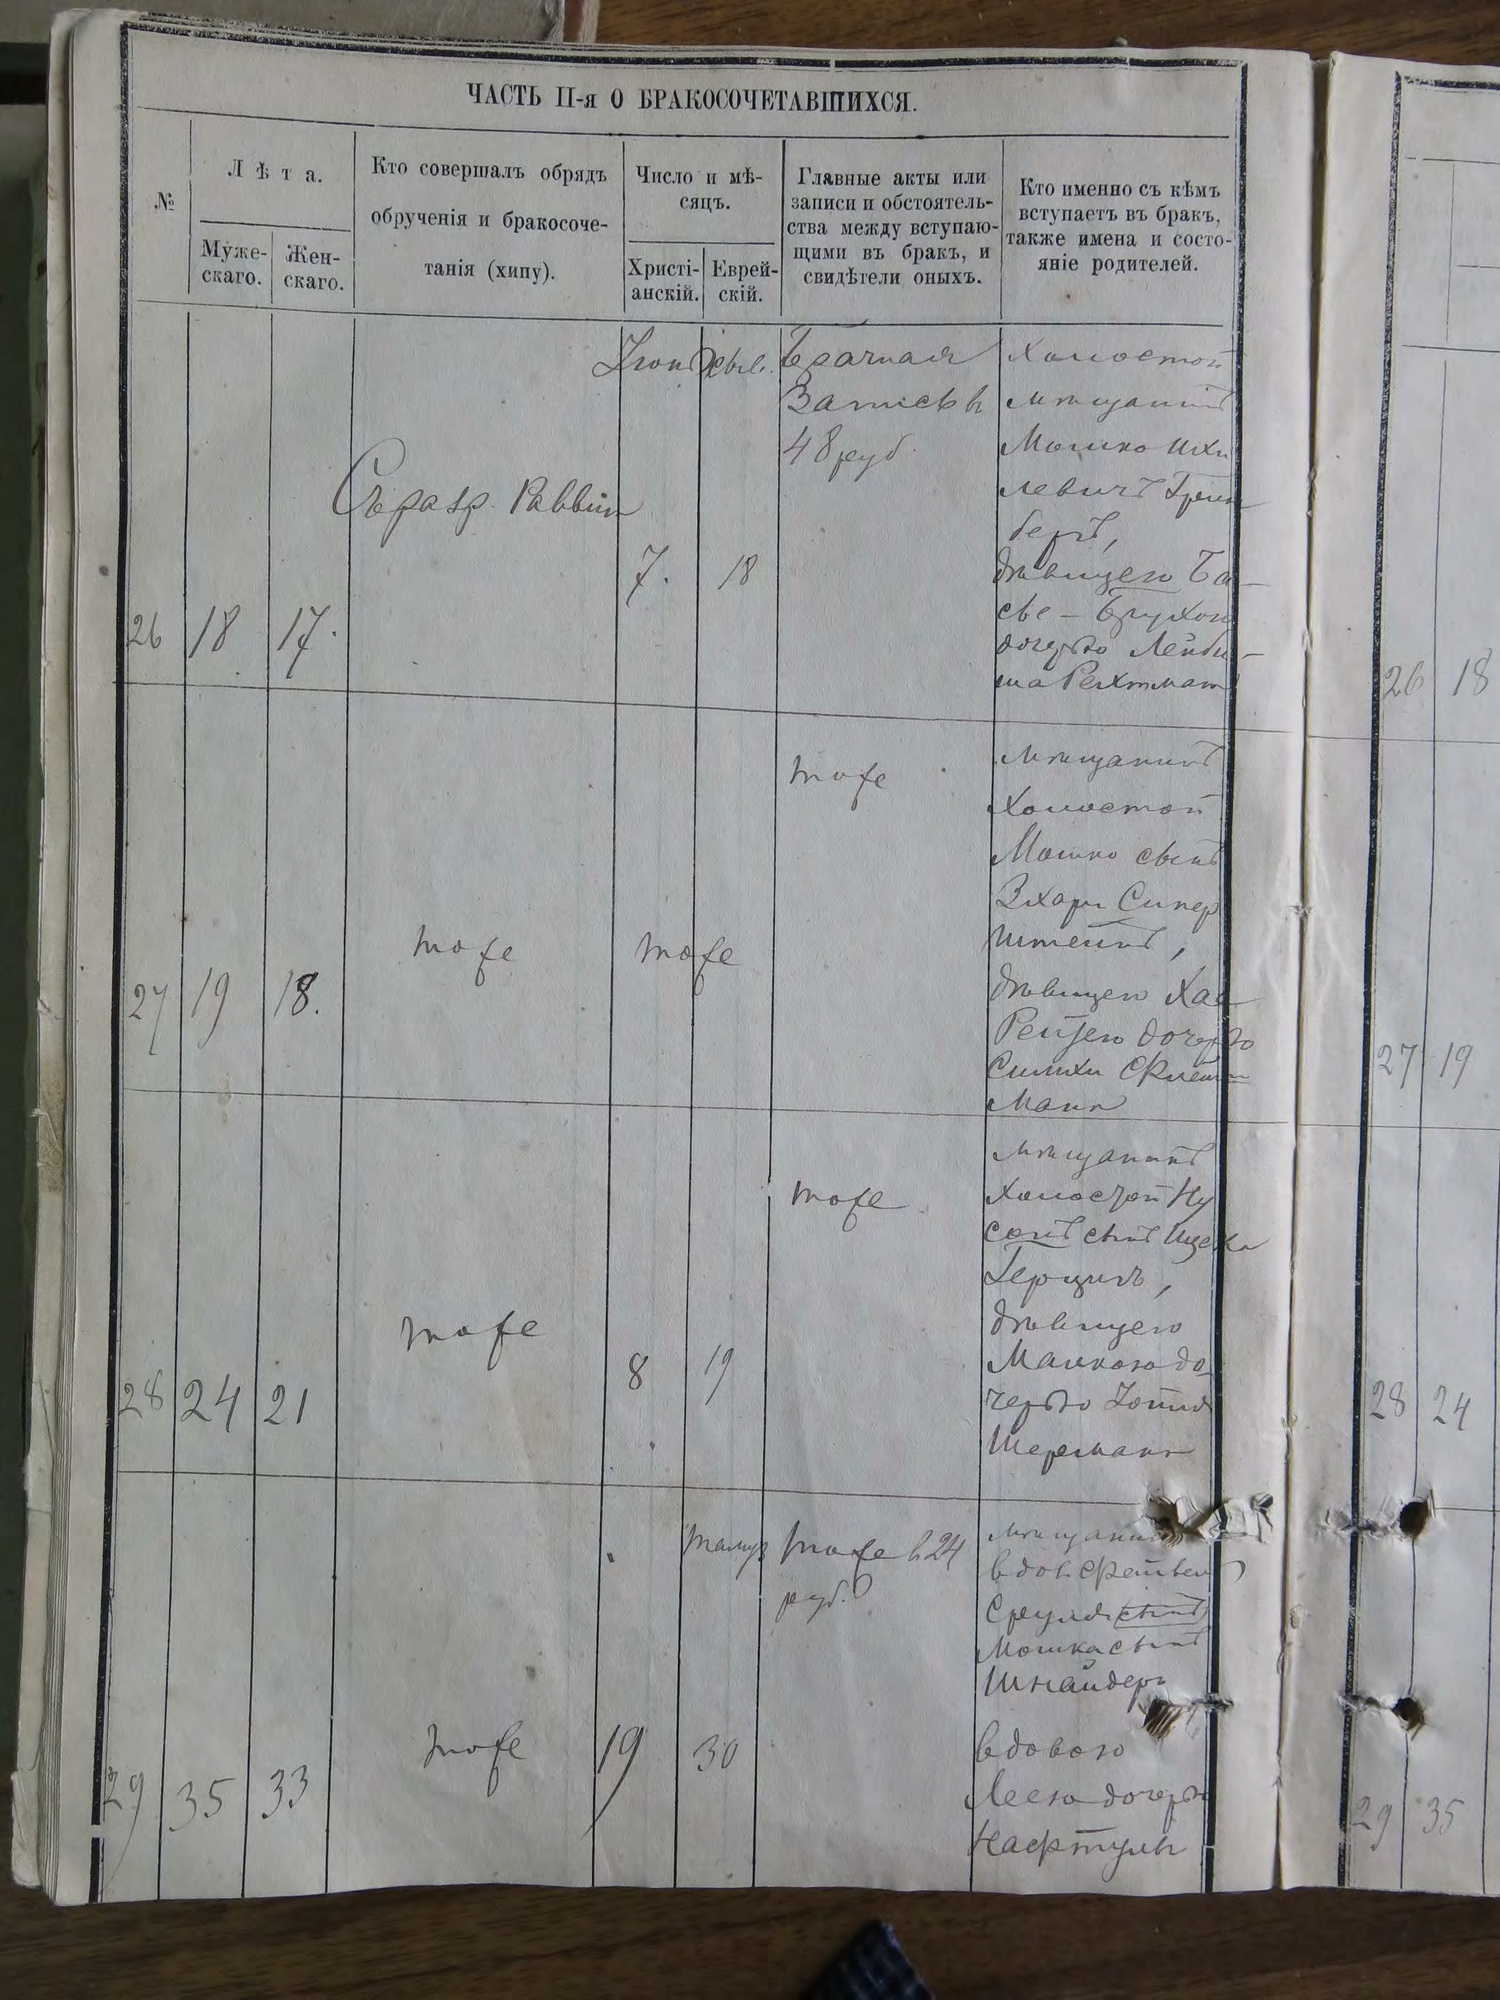 ЧАСТЬ II-я О БРАКОСОЧЕТАВШИХСЯ.
№
Лѣта.
Муже-
скаго.
Жен-
скаго.
Кто совершалъ обрядъ
обрученія и бракосоче-
танія (хипу).
Число и мѣ-
сяцъ.
Христі-
анскій.
Еврей-
скій.
Главные акты или
записи и обстоятель-
ства между вступаю-
щими въ бракъ, и
свидѣтели оныхъ.
Кто именно съ кѣмъ
вступаетъ въ бракъ,
также имена и состо-
яніе родителей.
26
18
17.
Раввин
7.
18
Брачная
Запись в
48 руб.
Холостой
мѣщанинъ
Мошко
левичъ Грин
бергъ,
дѣвицею Ба-
се - Брухою
дочерью Лейби-
ша Рехтман
27
19
18.
тоже
тоже
тоже
мѣщанинъ
холостой
Мошко сынъ
Супер
штейнъ,
дѣвицею Хае
Рейзею дочерью
Симхи Флейш
мана
28
24
21
тоже
8
19
тоже
мѣщанинъ
холостой Ну
сонъ сынъ Ицека
Герцихъ,
дѣвицею
Малкою до
черью
Шермана
29
35
33
тоже
19
тамуз
30
тоже в 24
руб.
мѣщанинъ
вдов Файвел
Сруля сынъ
Мошка сынъ
Шнайдер
вдовою
Леею дочерью
Нафтулы
26
18
27
19
28
24
29
35